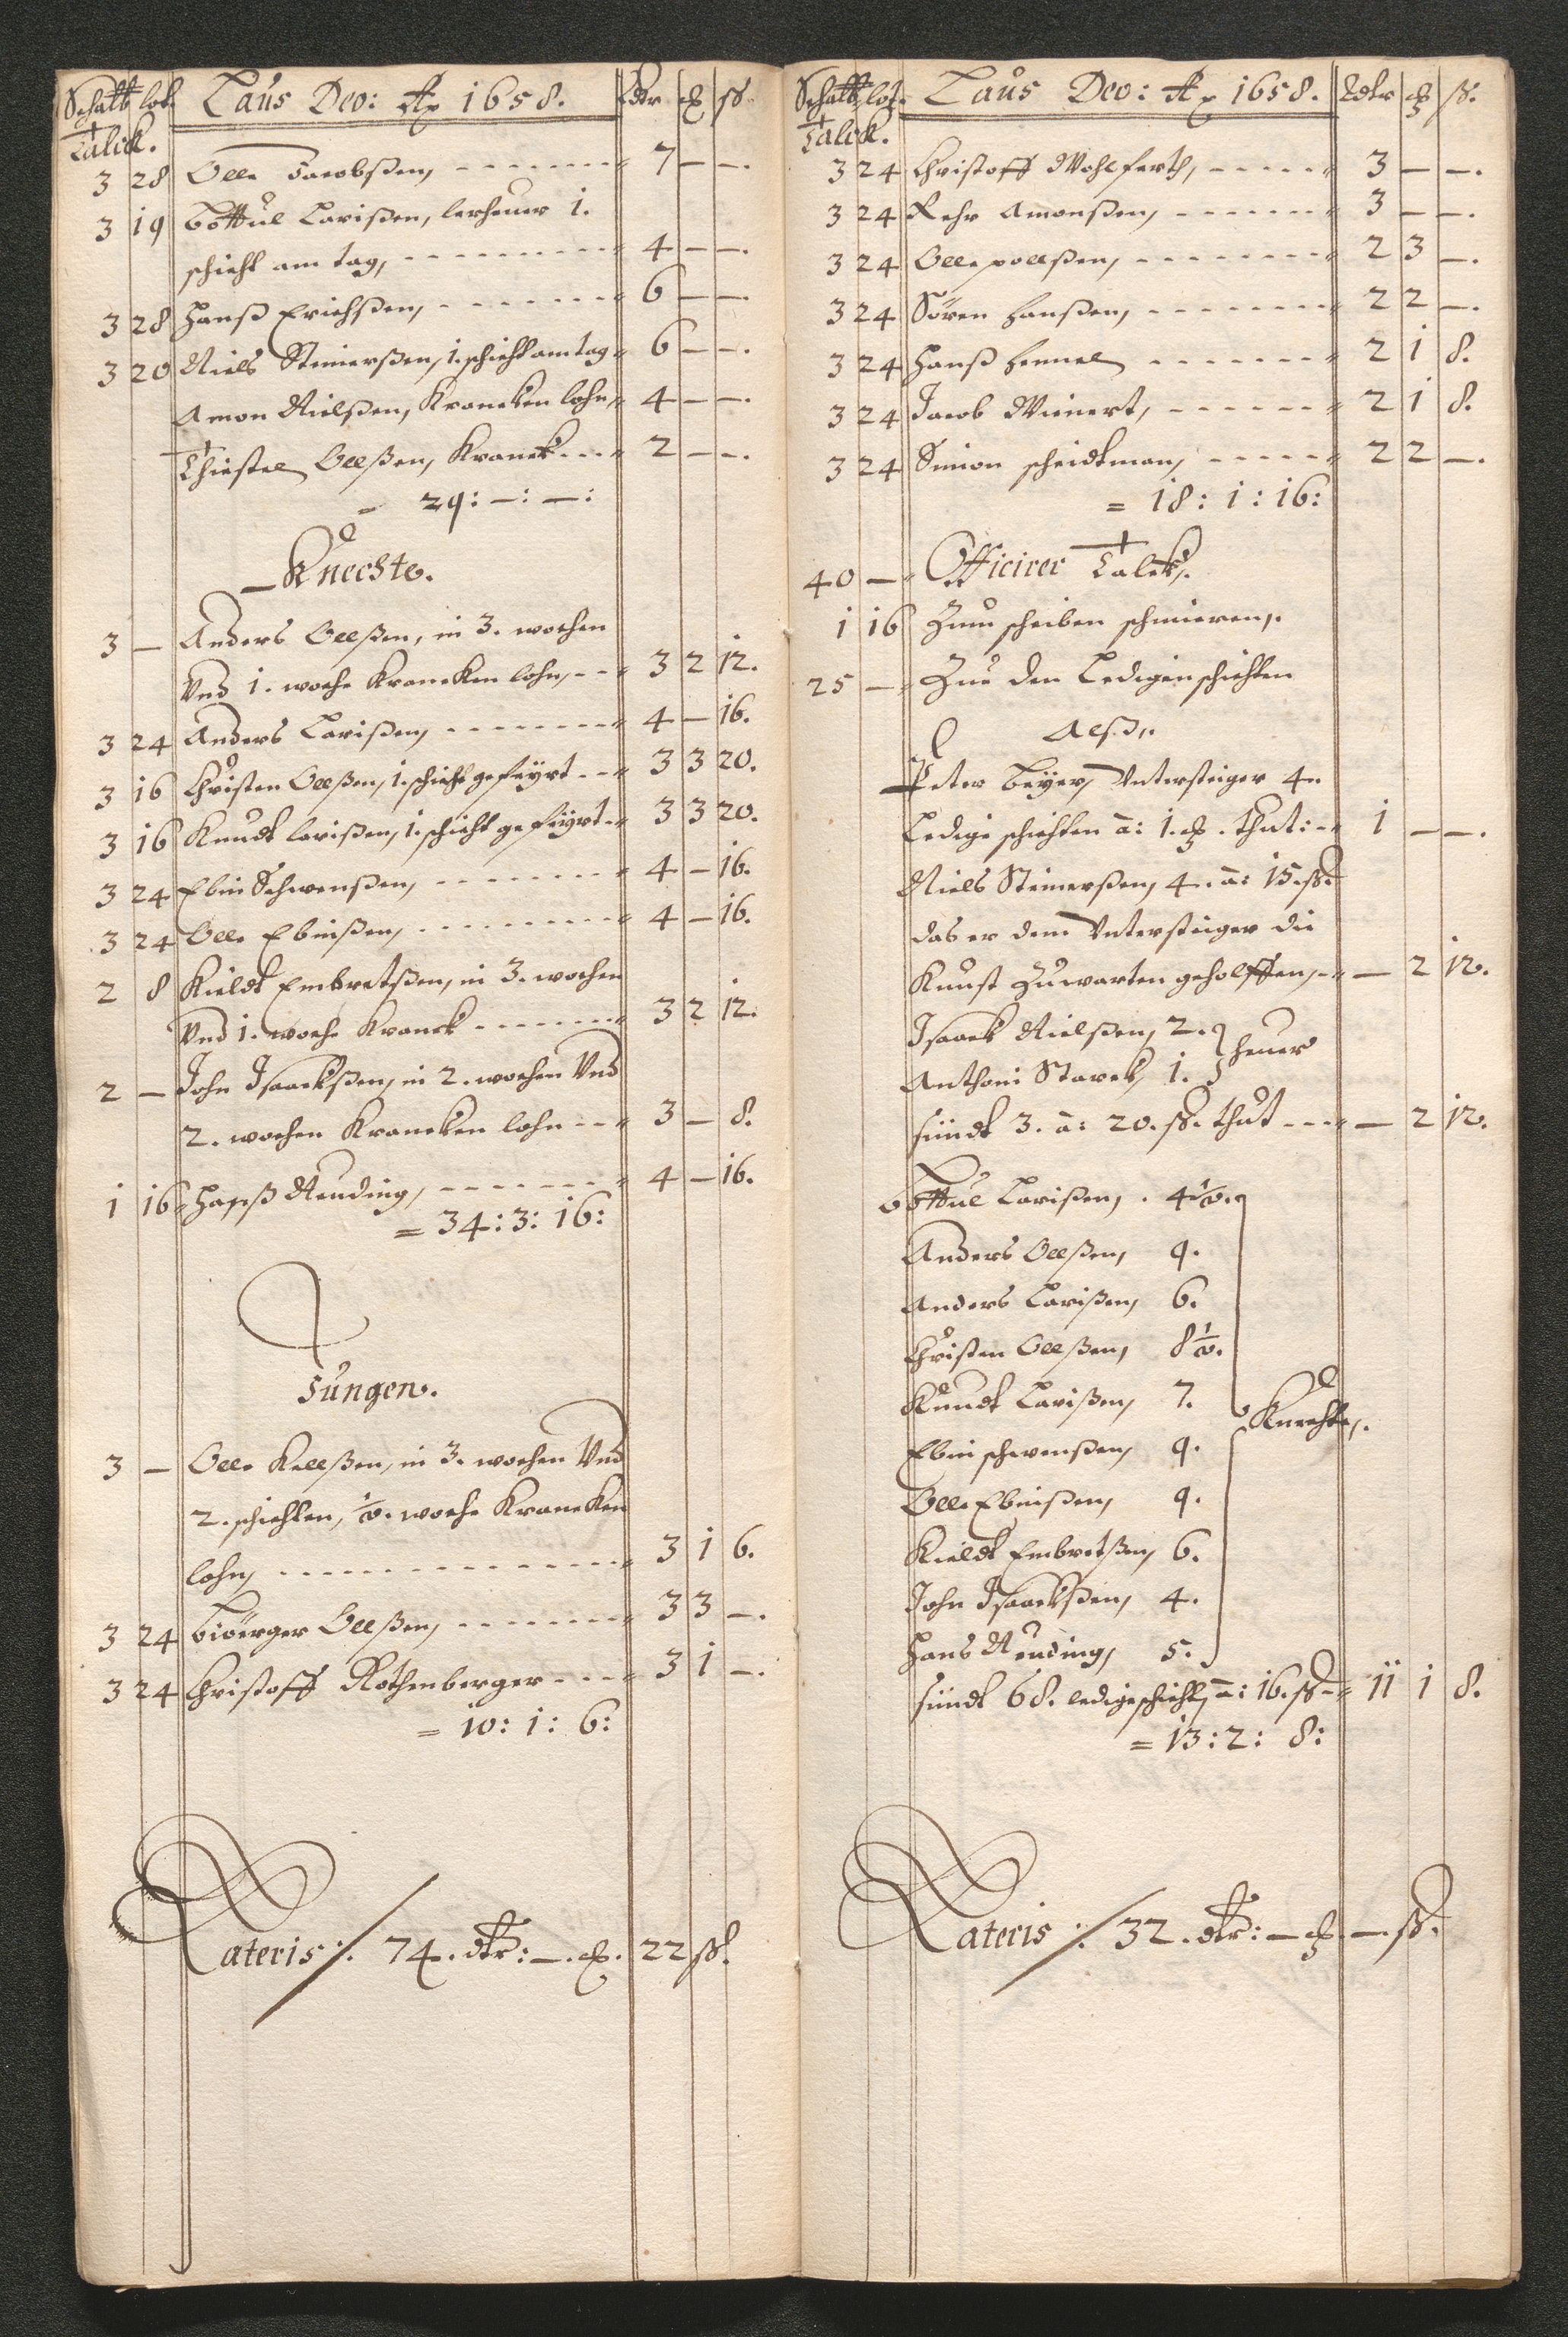 Schalt lot. Laus Deo: Ao 1658. Rdr ß.
Talck.
3 28 Olle Jacobßen, 7 — —.
3 19 Bottul Larißen, lerheuer 1.
schicht am tag, 4 — —.
3 28 Hanß Erichßen, 6 — —.
3 20 Niels Steinerßen, 1. schicht am tag 6 — —.
Amon Nielßen, Krancken lohn, 4 — —.
Chrestel Olleßen, Kranck 2 — —.
= 29: —: —:
Knechte.
3 — Anders Olleßen, in 3. wochen
Und 1. woche Krancken lohn, 3 2 12.
3 24 Anders Larißen, 4 — 16.
3 16 Christen Olleßen, 1. schicht gefeyrt 3 3 20.
3 16 Knudt Larißen, 1. schicht gefeyrt 3 3 20.
3 24 Ebin Schwenßen, 4 — 16.
3 24 Olle Ebinßen, 4 — 16.
2 8 Kieldt Embretßen, in 3. wochen
Und 1. woche Kranck 3 2 12.
2 — John Isaackßen, in 2. wochen Und
2. wochen Krancken lohn 3 — 8.
1 16 Hanß Reuding, 4 — 16.
= 34: 3: 16:
Jungen.
3 — Olle Kelleßen, in 3. wochen Und
2. schichten, ½. woche Krancken
lohn, 3 1 6.
3 24 Biöerger Olleßen, 3 3 —.
3 24 Christoff Rothenberger 3 1 —.
= 10: 1: 6:
Lateris: 74. dlr: — . 22 ß.
Schalt lot. Laus Deo: Ao 1658. Rdlr ß.
Talck.
3 24 Christoff Wohlfarth, 3 — —.
3 24 Rehr Amonßen, 3 — —.
3 24 Olle pollßen, 2 3 —.
3 24 Sören Hanßen, 2 2 —.
3 24 Hanß Hemel 2 1 8.
3 24 Jacob Weinert, 2 1 8.
3 24 Simon scheidtman, 2 2 —.
= 18: 1: 16:
40 — Officirer Talck.
1 16 Zum scheiben schmieren,
25 — Zue den Ledigen schichten
Alß.
Peter Beyer, Untersteiger 4.
Ledige schichten à: 1. thut: 1 — —.
Niels Steinerßen, 4. à: 15. ß.
das er dem Untersteiger die
Kunst Zuwarten geholffen, — 2 12.
Isaack Nielßen, 2.
Anthoni Starck, 1. heuer
sündt 3. à: 20. ß. thut — 2 12.
Bottul Larißen, 4½.
Anders Olleßen, 9.
Anders Larißen, 6.
Christen Olleßen, 8½.
Knudt Larißen, 7.
Knechte,
Ebin schwenßen, 9.
Olle Ebinßen, 9.
Kieldt Embretßen, 6.
John Isaackßen, 4.
Hans Reuding, 5.
sündt 68. ledige schicht, à: 16. ß 11 1 8.
= 13: 2: 8:
Lateris: 32. dlr: — . — . ß.